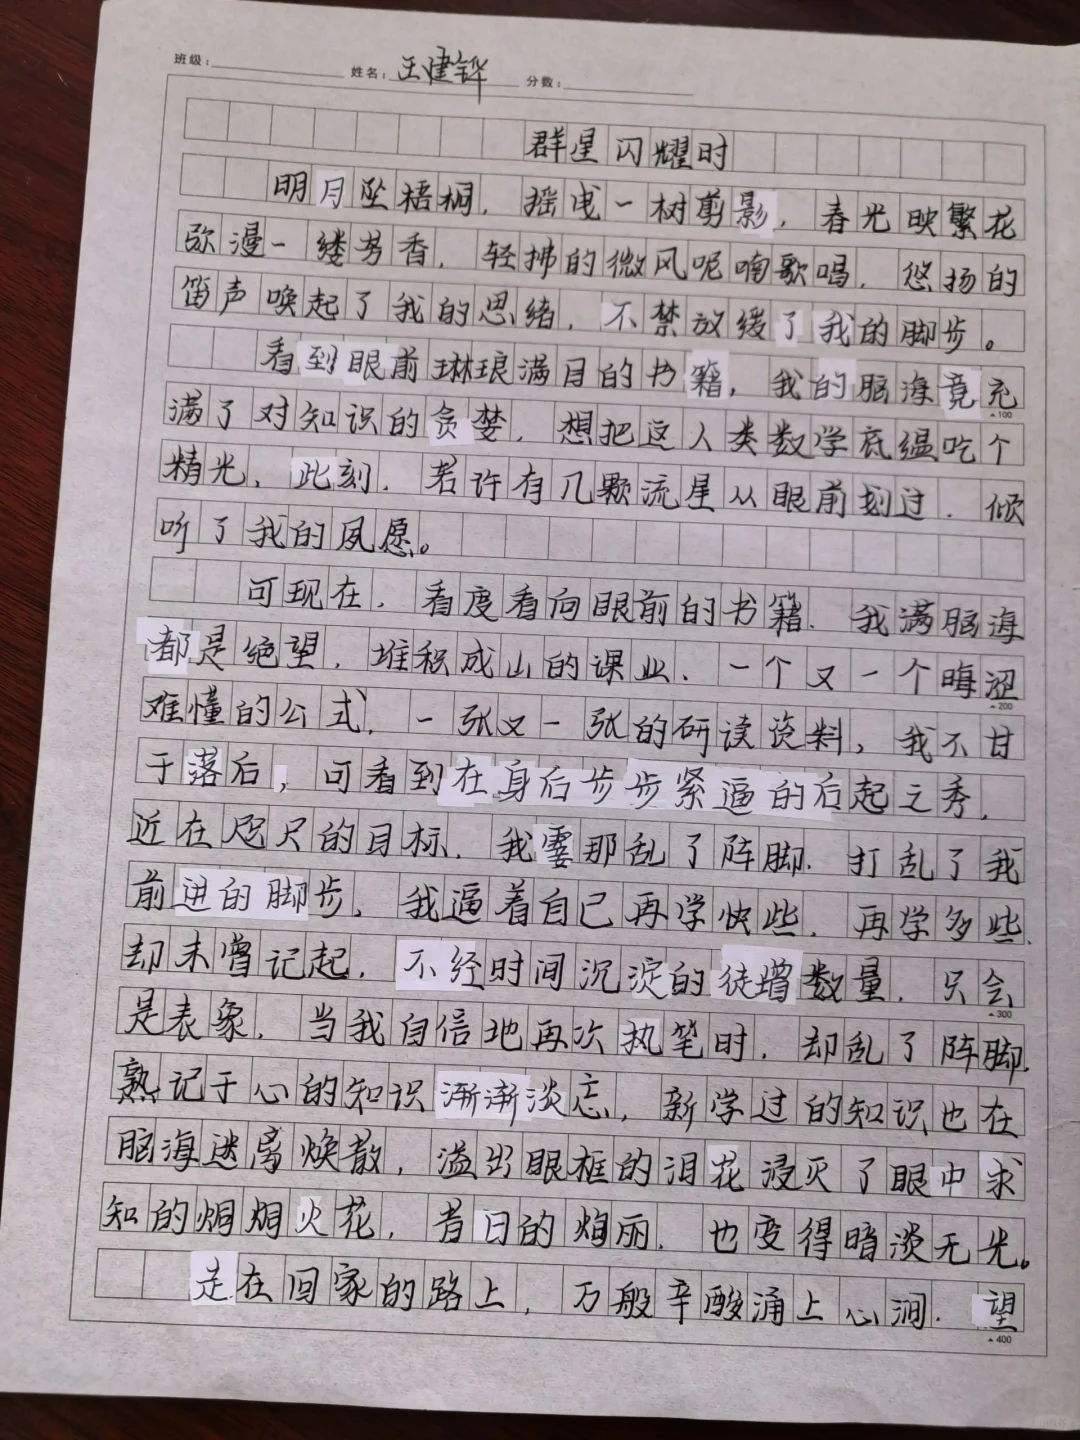 班级： 姓名：王建铧 分数：
群星闪耀时
明月坠梧桐，摇曳一树剪影，春光映繁花
弥漫一缕芳香，轻拂的微风呢喃歌唱，悠扬的
笛声唤起了我的思绪，不禁放缓了我的脚步。
看到眼前琳琅满目的书籍，我的脑海竟充
满了对知识的贪婪，想把这人类数学底蕴吃个
精光，此刻，若许有几颗流星从眼前划过，倾
听了我的夙愿。
▲100
可现在，看度看向眼前的书籍，我满脑海
都是绝望，堆积成山的课业，一个又一个晦涩
▲200
难懂的公式，一张又一张的研读资料，我不甘
于落后，可看到在身后步步紧逼的后起之秀，
近在咫尺的目标，我霎那乱了阵脚，打乱了我
前进的脚步，我逼着自己再学快些，再学多些，
却未曾记起，不经时间沉淀的徒增数量，只会
▲300
是表象，当我自信地再次执笔时，却乱了阵脚，
熟记于心的知识渐渐淡忘，新学过的知识也在
脑海迷离焕散，溢出眼框的泪花浸灭了眼中求
知的炯炯火花，昔日的绚丽，也变得暗淡无光。
走在回家的路上，万般辛酸涌上心涧，望
▲400